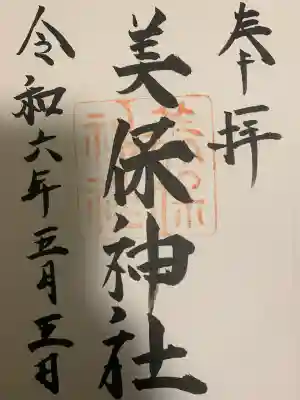 奉拝
美保神社
令和六年五月三日